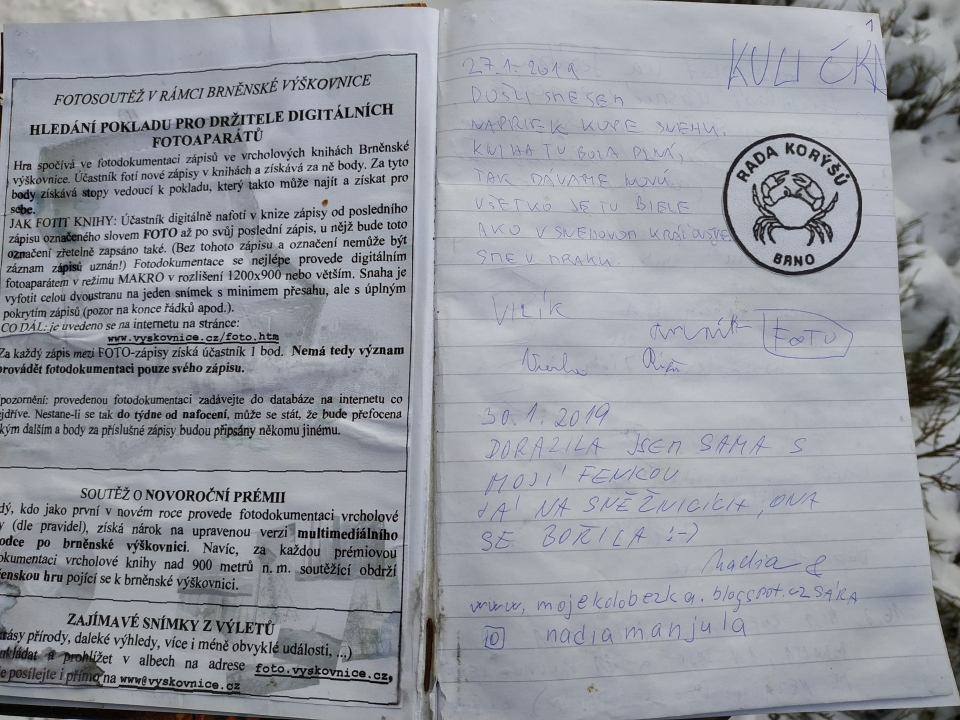 FOTOSOUTĚŽ V RÁMCI BRNĚNSKÉ VÝŠKOVNICE
HLEDÁNÍ POKLADU PRO DRŽITELE DIGITÁLNÍCH
FOTOAPARÁTŮ
Hra spočívá ve fotodokumentaci zápisů ve vrcholových knihách Brněnské
výškovnice. Účastník fotí nové zápisy v knihách a získává za ně body. Za tyto
body získává stopy vedoucí k pokladu, který takto může najít a získat pro
sebe.
JAK FOTIT KNIHY: Účastník digitálně nafotí v knize zápisy od posledního
zápisu označeného slovem FOTO až po svůj poslední zápis, u nějž bude toto
označení zřetelně zapsáno také. (Bez tohoto zápisu a označení nemůže být
záznam zápisů uznán!) Fotodokumentace se nejlépe provede digitálním
fotoaparátem v režimu MAKRO v rozlišení 1200x900 nebo větším. Snaha je
vyfotit celou dvoustranu na jeden snímek s minimem přesahu, ale s úplným
pokrytím zápisů (pozor na konce řádků apod.).
CO DÁL: je uvedeno se na internetu na stránce:
www.vyskovnice.cz/foto.htm
Za každý zápis mezi FOTO-zápisy získá účastník 1 bod. Nemá tedy význam
provádět fotodokumentaci pouze svého zápisu.
pozornění: provedenou fotodokumentaci zadávejte do databáze na internetu co
ejdříve. Nestane-li se tak do týdne od nafocení, může se stát, že bude přefocena
kým dalším a body za příslušné zápisy budou připsány někomu jinému.
SOUTĚŽ O NOVOROČNÍ PRÉMII
dý, kdo jako první v novém roce provede fotodokumentaci vrcholové
y (dle pravidel), získá nárok na upravenou verzi multimediálního
odce po brněnské výškovnici. Navíc, za každou prémiovou
okumentaci vrcholové knihy nad 900 metrů n. m. soutěžící obdrží
čenskou hru pojící se k brněnské výškovnici.
ZAJÍMAVÉ SNÍMKY Z VÝLETŮ
krásy přírody, daleké výhledy, více i méně obvyklé události, ...)
kládat a prohlížet v albech na adrese foto.vyskovnice.cz,
e posílejte i přímo na www@vyskovnice.cz
1
KULIČKA
27.1.2019
DOŠLI SME SEM
NAPRIEK KOPE SNEHU.
KNIHA TU BOLA PLNÁ,
TAK DÁVAME NOVÚ.
VŠETKO JE TU BIELE
AKO V SNEHOVOM KRÁĽOVSTVE
SME V MRAKU.
RADA KORÝŠŮ
BRNO
VILÍK
FOTO
30.1.2019
DORAZILA JSEM SAMA S
MOJÍ FENKOU
JÁ NA SNĚŽNICÍCH, ONA
SE BOŘILA :-)
Nadia &
www.mojekolobezka.blogspot.cz SÁRA
nadiamanjula